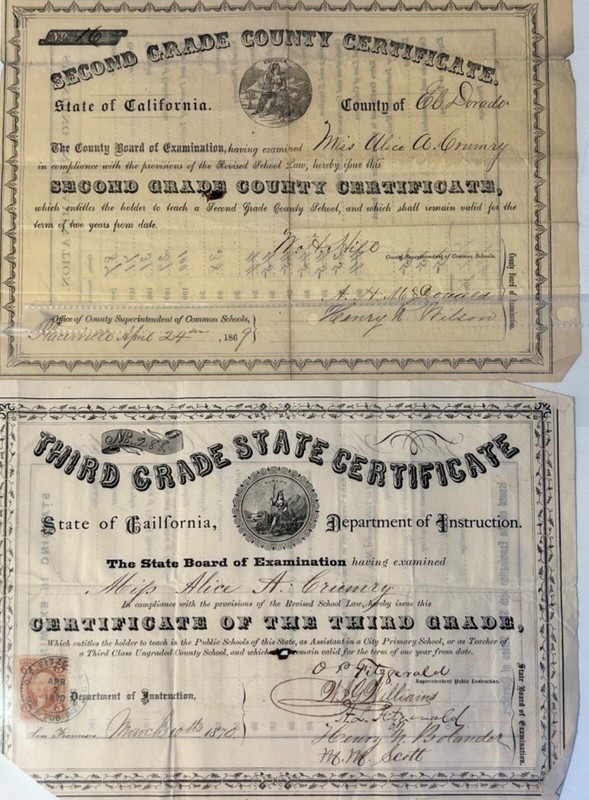 No. 16
SECOND GRADE COUNTY CERTIFICATE.
State of California. County of El Dorado
The County Board of Examination, having examined Miss Alice A. Crumry
in compliance with the provisions of the Revised School Law, hereby issue this
SECOND GRADE COUNTY CERTIFICATE,
which entitles the holder to teach a Second Grade County School, and which shall remain valid for the
term of two years from date.
County Superintendent of Common Schools.
Henry N. Wilson
County Board of Examination.
Office of County Superintendent of Common Schools,
Placerville April 24th, 1869
THIRD GRADE STATE CERTIFICATE
State of California, Department of Instruction.
The State Board of Examination having examined
Miss Alice A. Crumry
In compliance with the provisions of the Revised School Law, hereby issue this
CERTIFICATE OF THE THIRD GRADE,
Which entitles the holder to teach in the Public Schools of this State, as Assistant in a City Primary School, or as Teacher of
a Third Class Ungraded County School, and which remain valid for the term of one year from date.
O. P. Fitzgerald
Superintendent Public Instruction.
Williams
Henry N. Bolander
M. M. Scott
State Board of Examination.
APR
2
1870
Department of Instruction,
San Francisco March 10th 1870